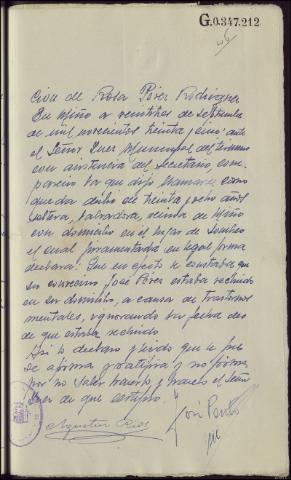 G.0.347.212
de Rosa Pérez Rodríguez
En Miño a veintitres de septiembre
de mil novecientos treinta y cinco; ante
el Señor Juez Municipal del termino
con asistencia del Secretario, com-
parecio la que dijo llamarse como
queda dicho de treinta y ocho años
soltera, labradora, vecina de Miño
con domicilio en el lugar de
el cual juramentada en legal forma
declara: Que en efecto le constaba que
su convecino José Pérez estaba recluido
en su domicilio, a causa de trastornos
mentales, ignorando la fecha des
de que estaba recluido
Asi lo declara leido que le fue
se afirma y ratifica y no firma
por no saber hacerlo y el Señor
Juez de que certifico
Agustin
José